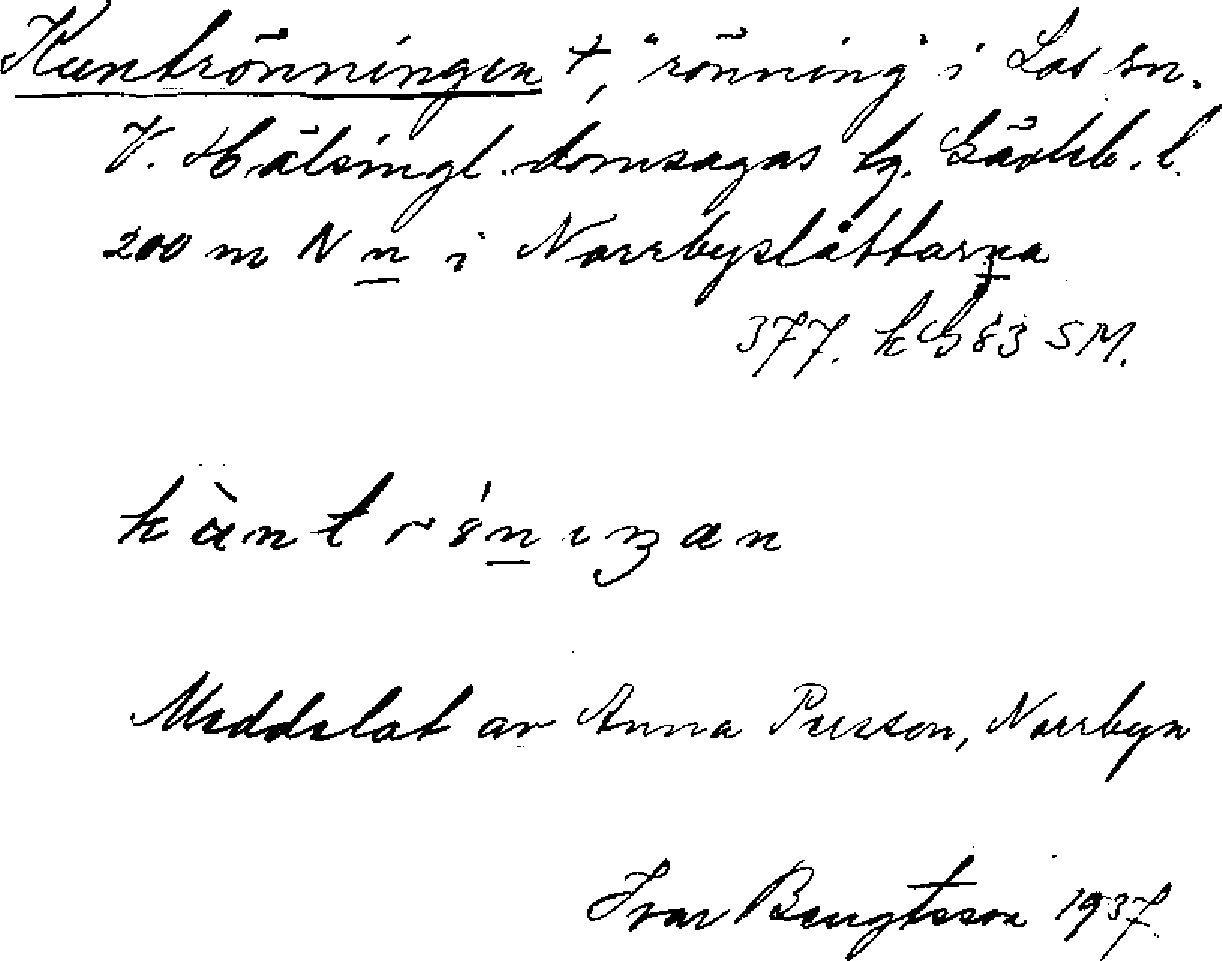 Kuntrönningen +, "rönning" i Los sn.
V. Hälsingl. domsagas tg. Gävleb. l.
200 m N n i Norrbyslåttarna
377. k G 83 SM.
Meddelat av Anna Persson, Norrbyn
Ivar Bengtsson 1937.